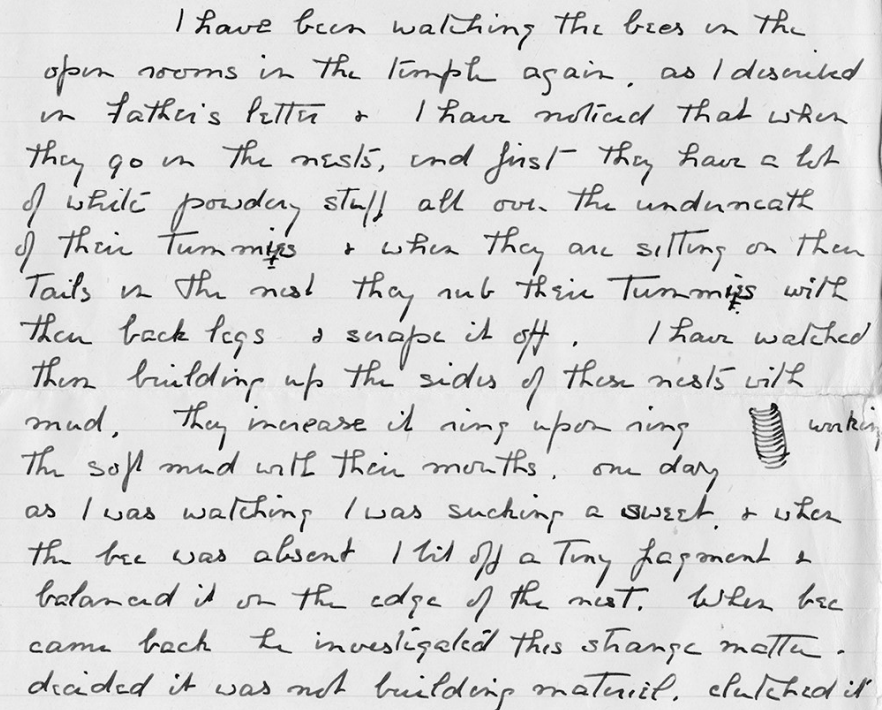 I have been watching the bees in the
open rooms in the temple again, as I described
in Father's letter & I have noticed that when
they go in the nests, end first they have a lot
of white powdery stuff all over the underneath
of their Tummies & when they are sitting on their
Tails in the nest they rub their Tummies with
their back legs & scrape it off. I have watched
them building up the sides of these nests with
mud, They increase it ring upon ring working
the soft mud with their mouths. One day
as I was watching I was sucking a sweet, & when
the bee was absent I bit off a Tiny fragment &
balanced it on the edge of the nest. When bee
came back he investigated this strange matter.
decided it was not building material. clutched it